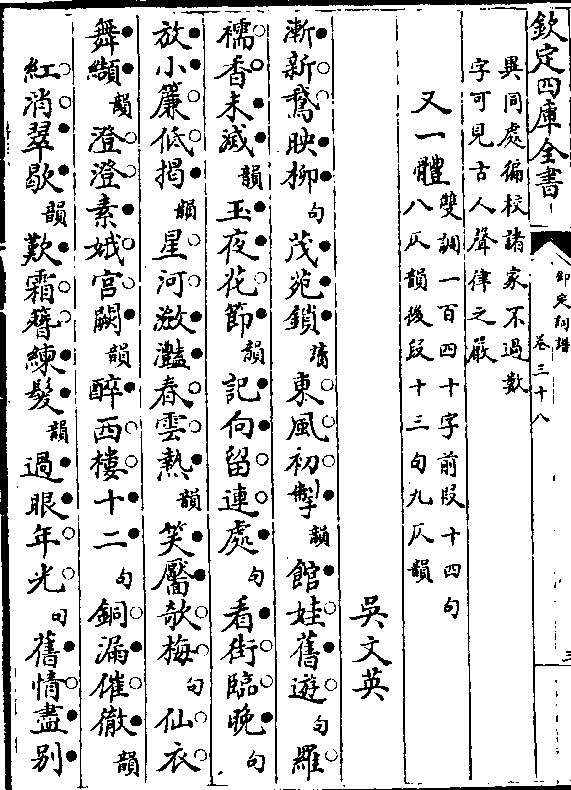 欽定四庫全書
御定詞譜
卷三十八
三
異同處偏校諸家不過數
字可見古人聲律之嚴
又一體
雙調一百四十字前段十四句
八仄韻後段十三句九仄韻
吳文英
漸新鵞映柳句茂苑鎖讀東風初掣韻館娃舊遊句羅
襦香未滅韻玉夜花節韻記向留連處句看街臨晚句
放小簾低揭韻星河瀲灩春雲熱韻笑靨欹梅句仙衣
舞纈韻澄澄素娥宮闕韻醉西樓十二句銅漏催徹韻
紅消翠歇韻歎霜簪練髮韻過眼年光句舊情盡别